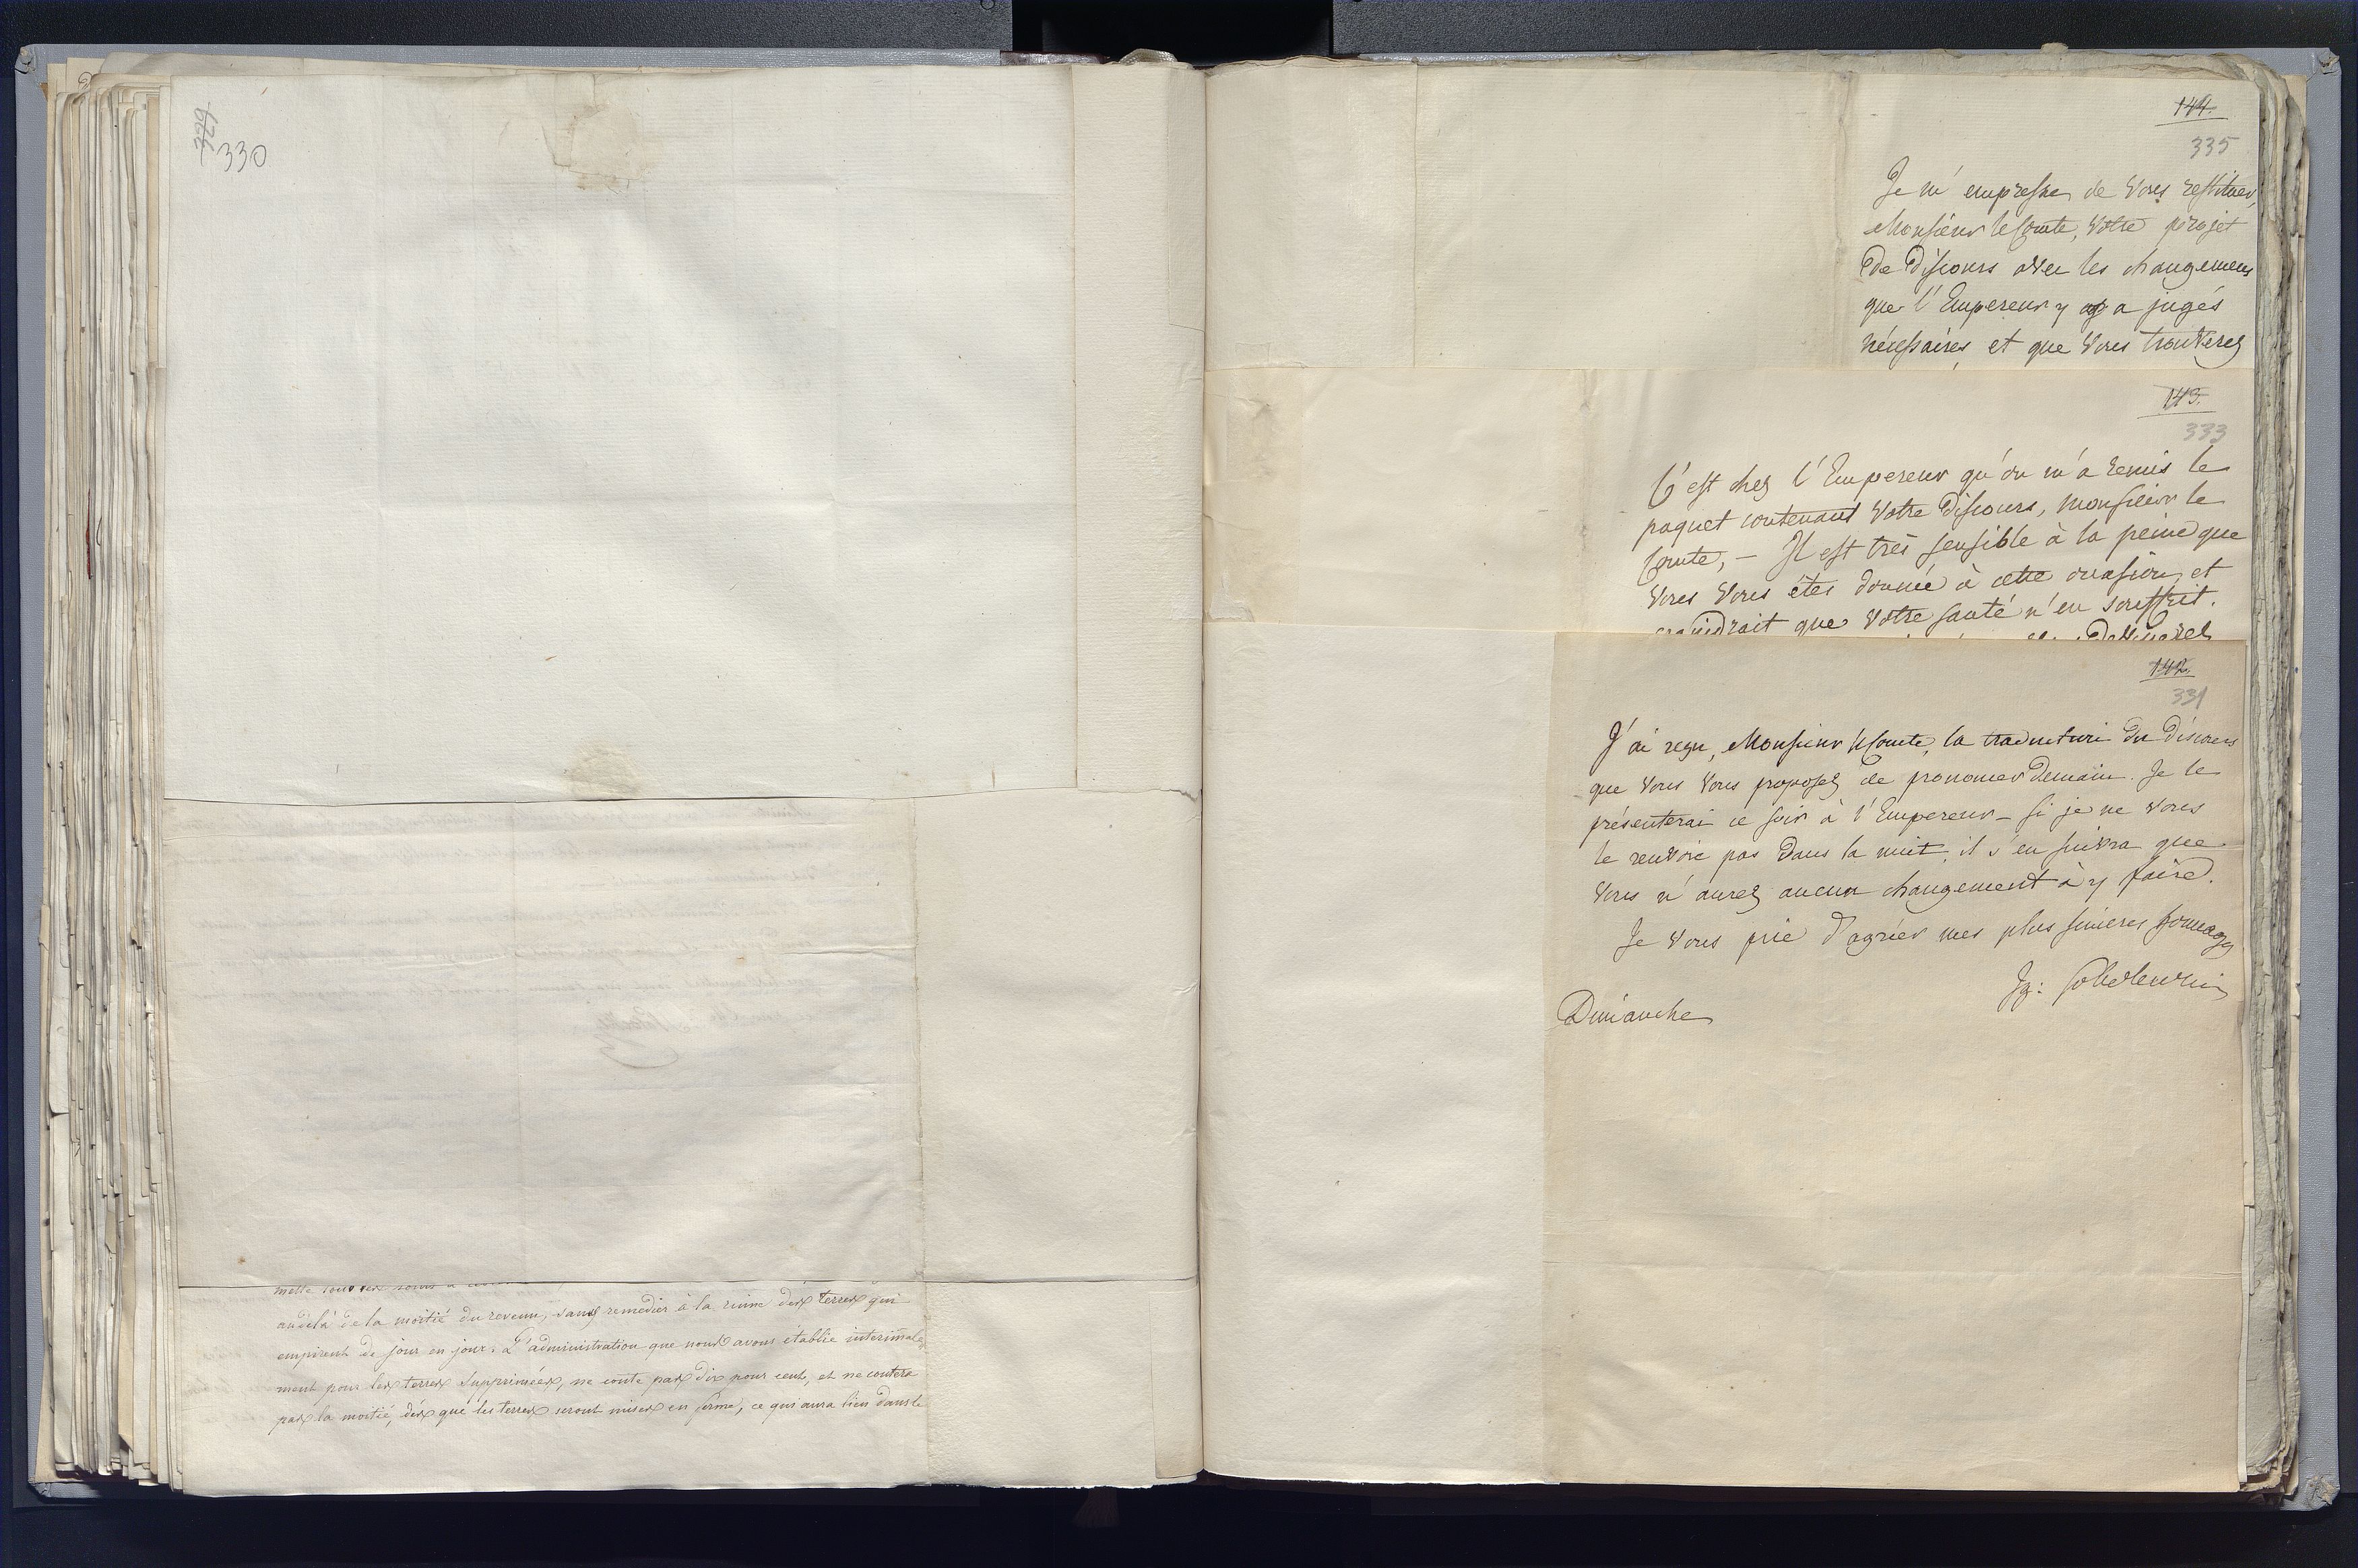 330
au delà de la moitié du revenu, sans remedier à la ruine des terres qui
empirent de jour en jour. L'administration que nous avons établie interimale
ment pour les terres supprimées, ne coute pas dix pour cent, et ne coutera
pas la moitié, dès que les terres seront mises en ferme, ce qui aura lieu dans le
144.
335
Je m'empresse de vous restituer,
Monsieur le Comte, votre projet
de discours avec les changemens
que l'Empereur y a jugés
nécessaires et que vous trouverez
143.
333
C'est chez l'Empereur qu'on m'a remis le
paquet contenant votre discours, monsieur le
Comte, – Il est très sensible à la peine que
vous vous êtes donnée à cette occasion, et
craindrait que votre santé n'en souffrit.
142.
331
J'ai reçu, Monsieur le Comte, la traduction du discours
que vous vous proposez de prononcer demain. Je le
présenterai ce soir à l'Empereur – si je ne vous
le renvoie pas dans la nuit, il s'en suivra que
vous n'aurez aucun changement à y faire.
Je vous prie d'agréer mes plus sincères hommages
Ig: Sobolewski
Dimanche